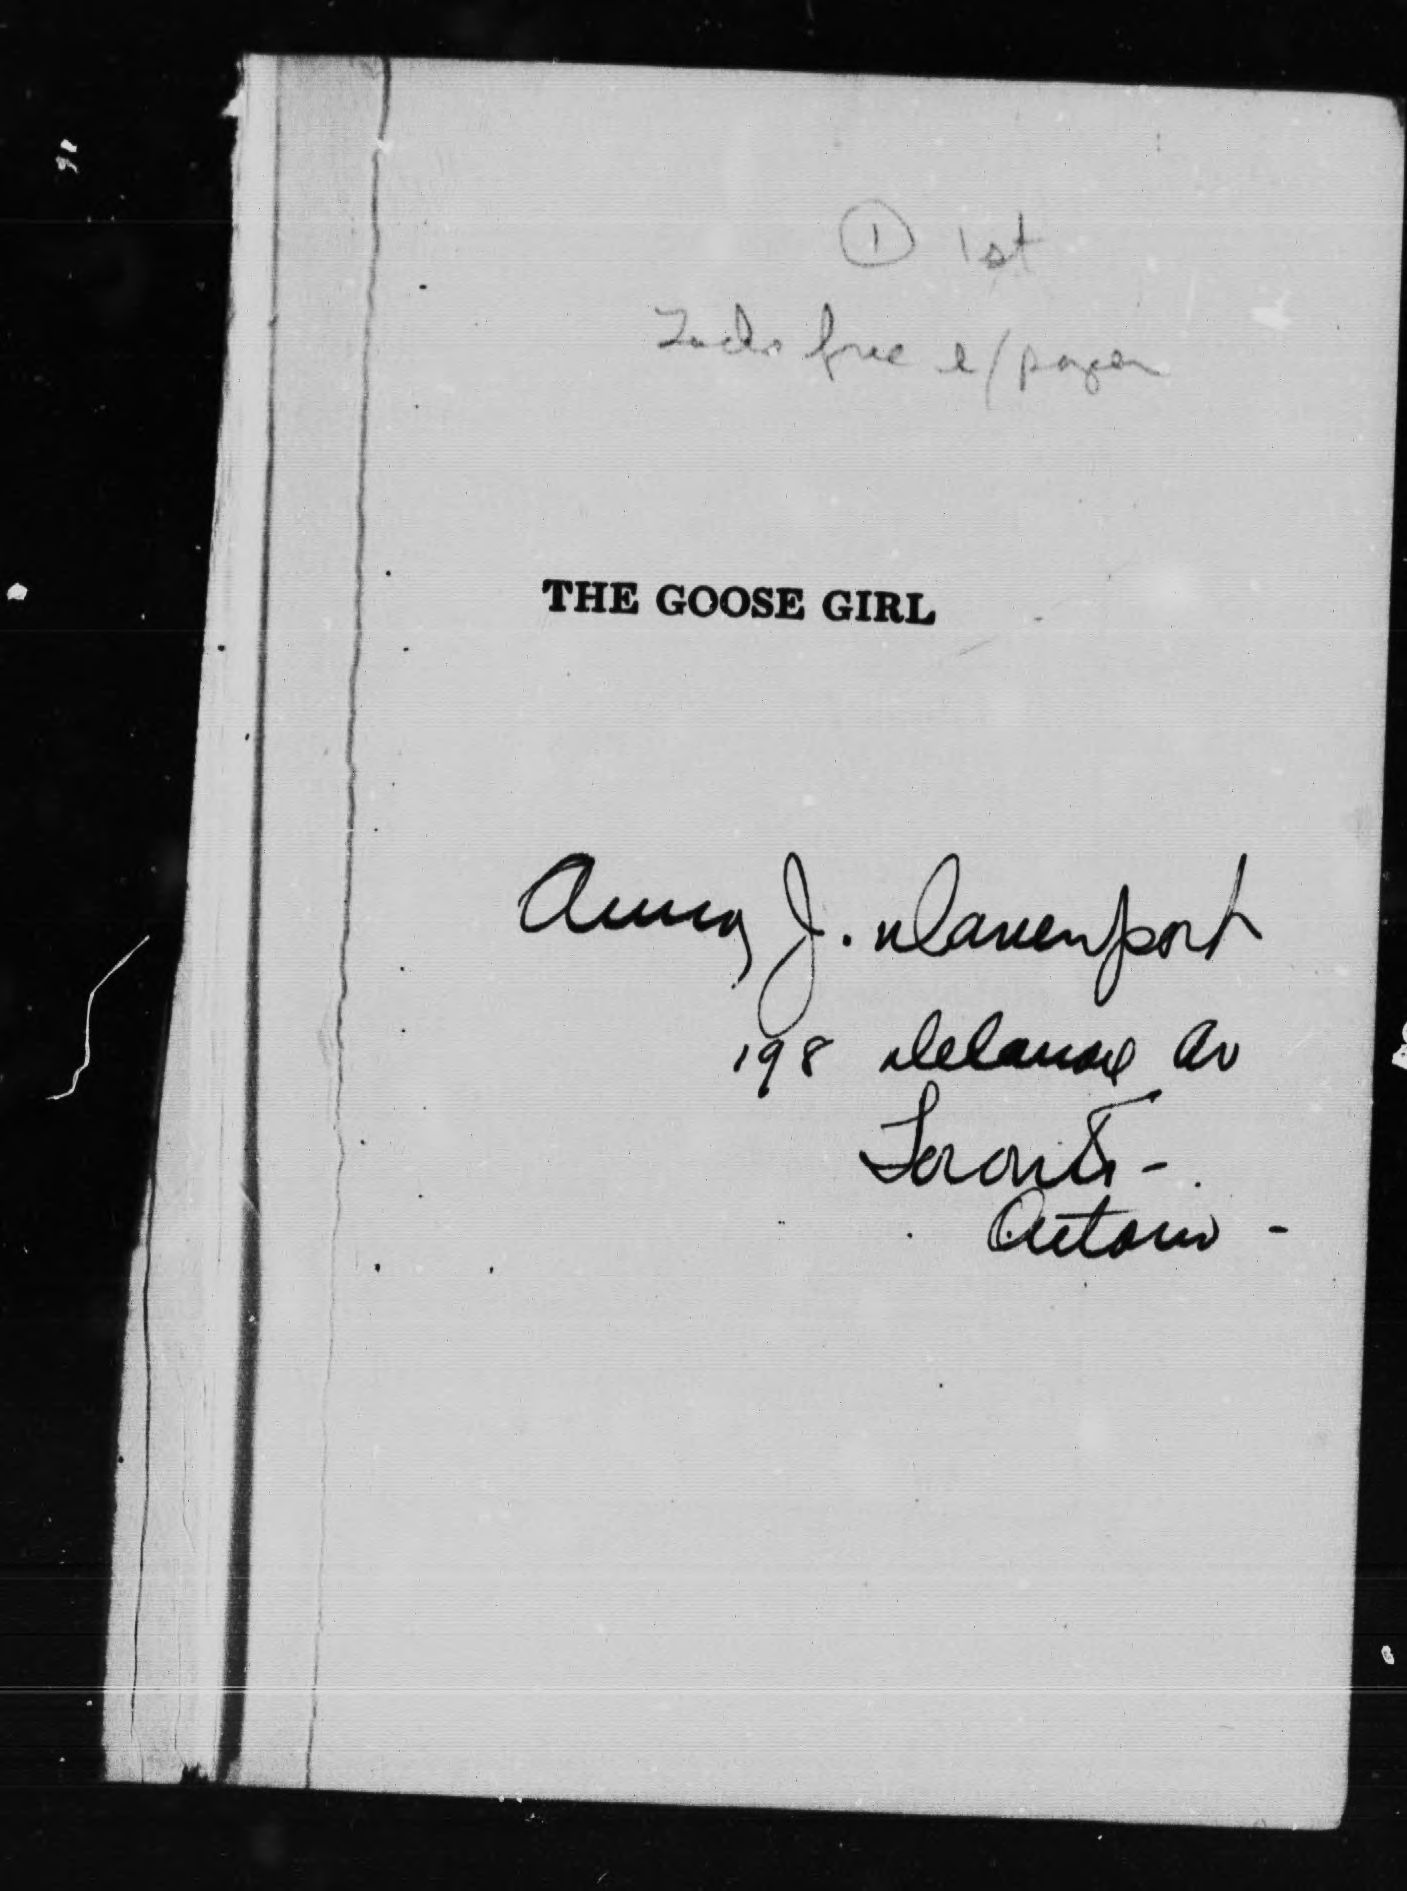 ① 1st
Lacks free e/paper
THE GOOSE GIRL
Anna J. Davenport
198 Delaware Av
Toronto -
Ontario -